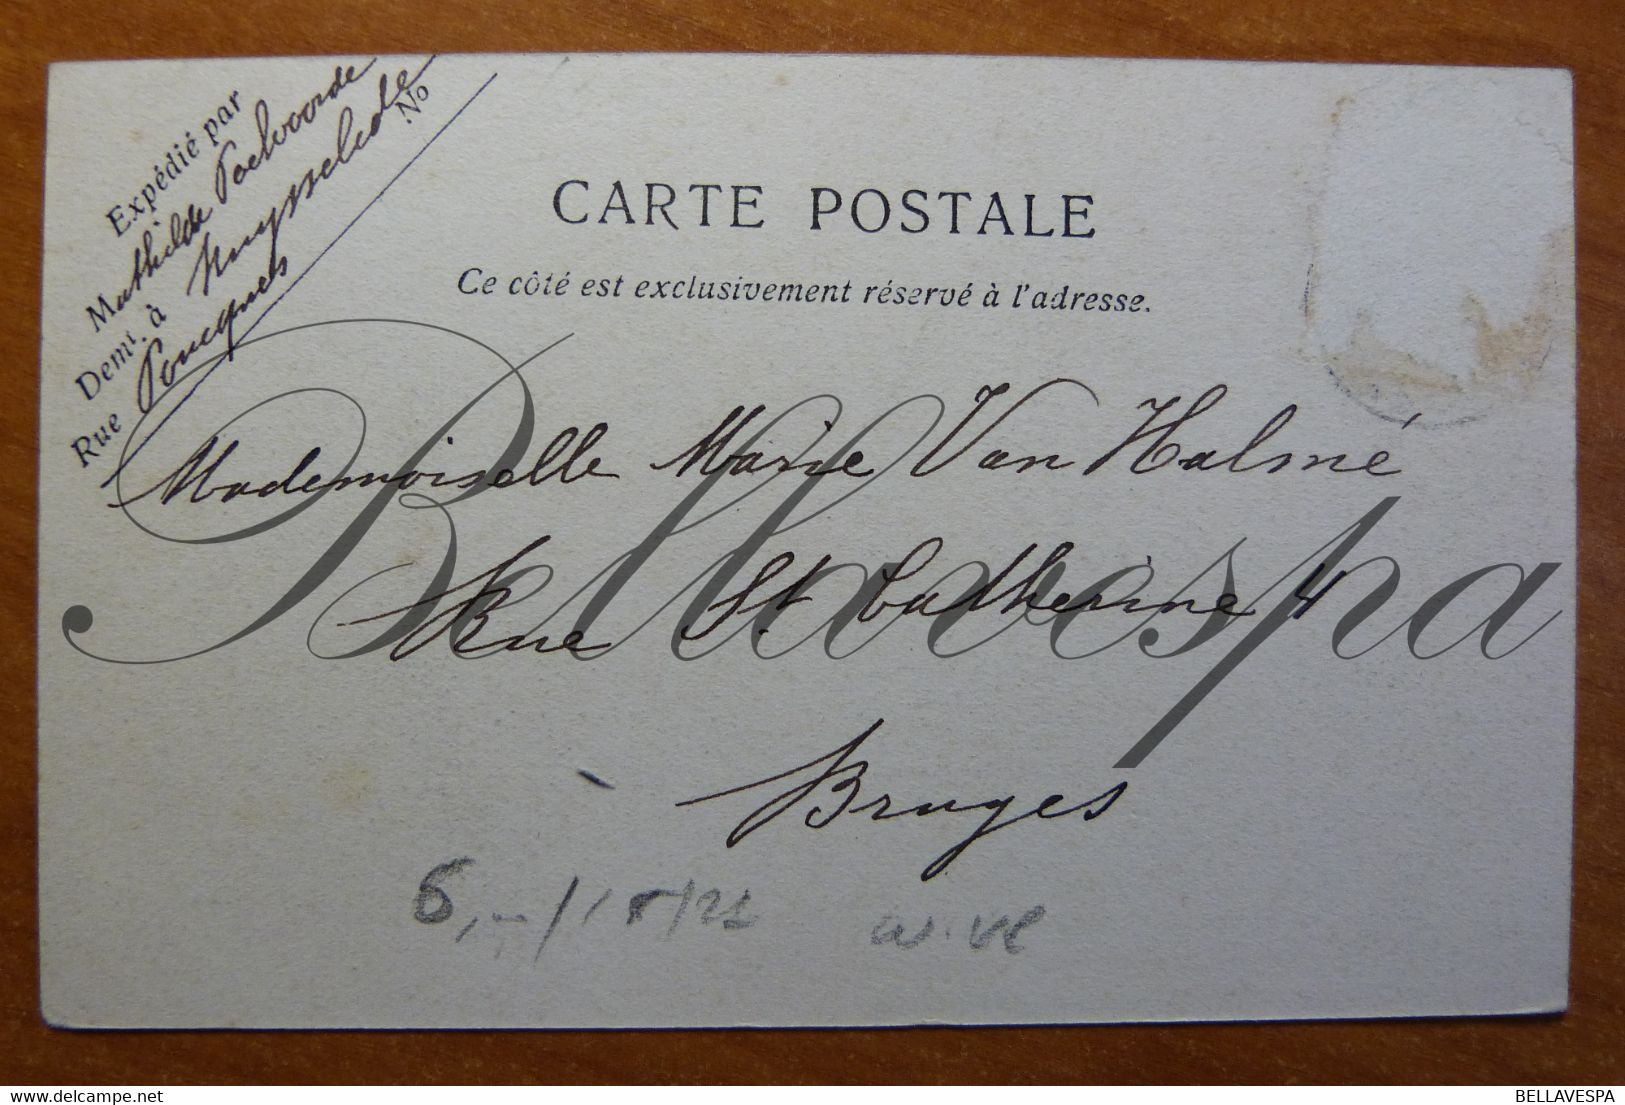 Expédié par
Mathilde Poelvoorde
Demt. à Kruysselede
Rue Poucques No
CARTE POSTALE
Ce côté est exclusivement réservé à l'adresse.
Mademoiselle Marie Van Halmé
Rue St. Catherine 4
Bruges
Bellavespa
BELLAVESPA